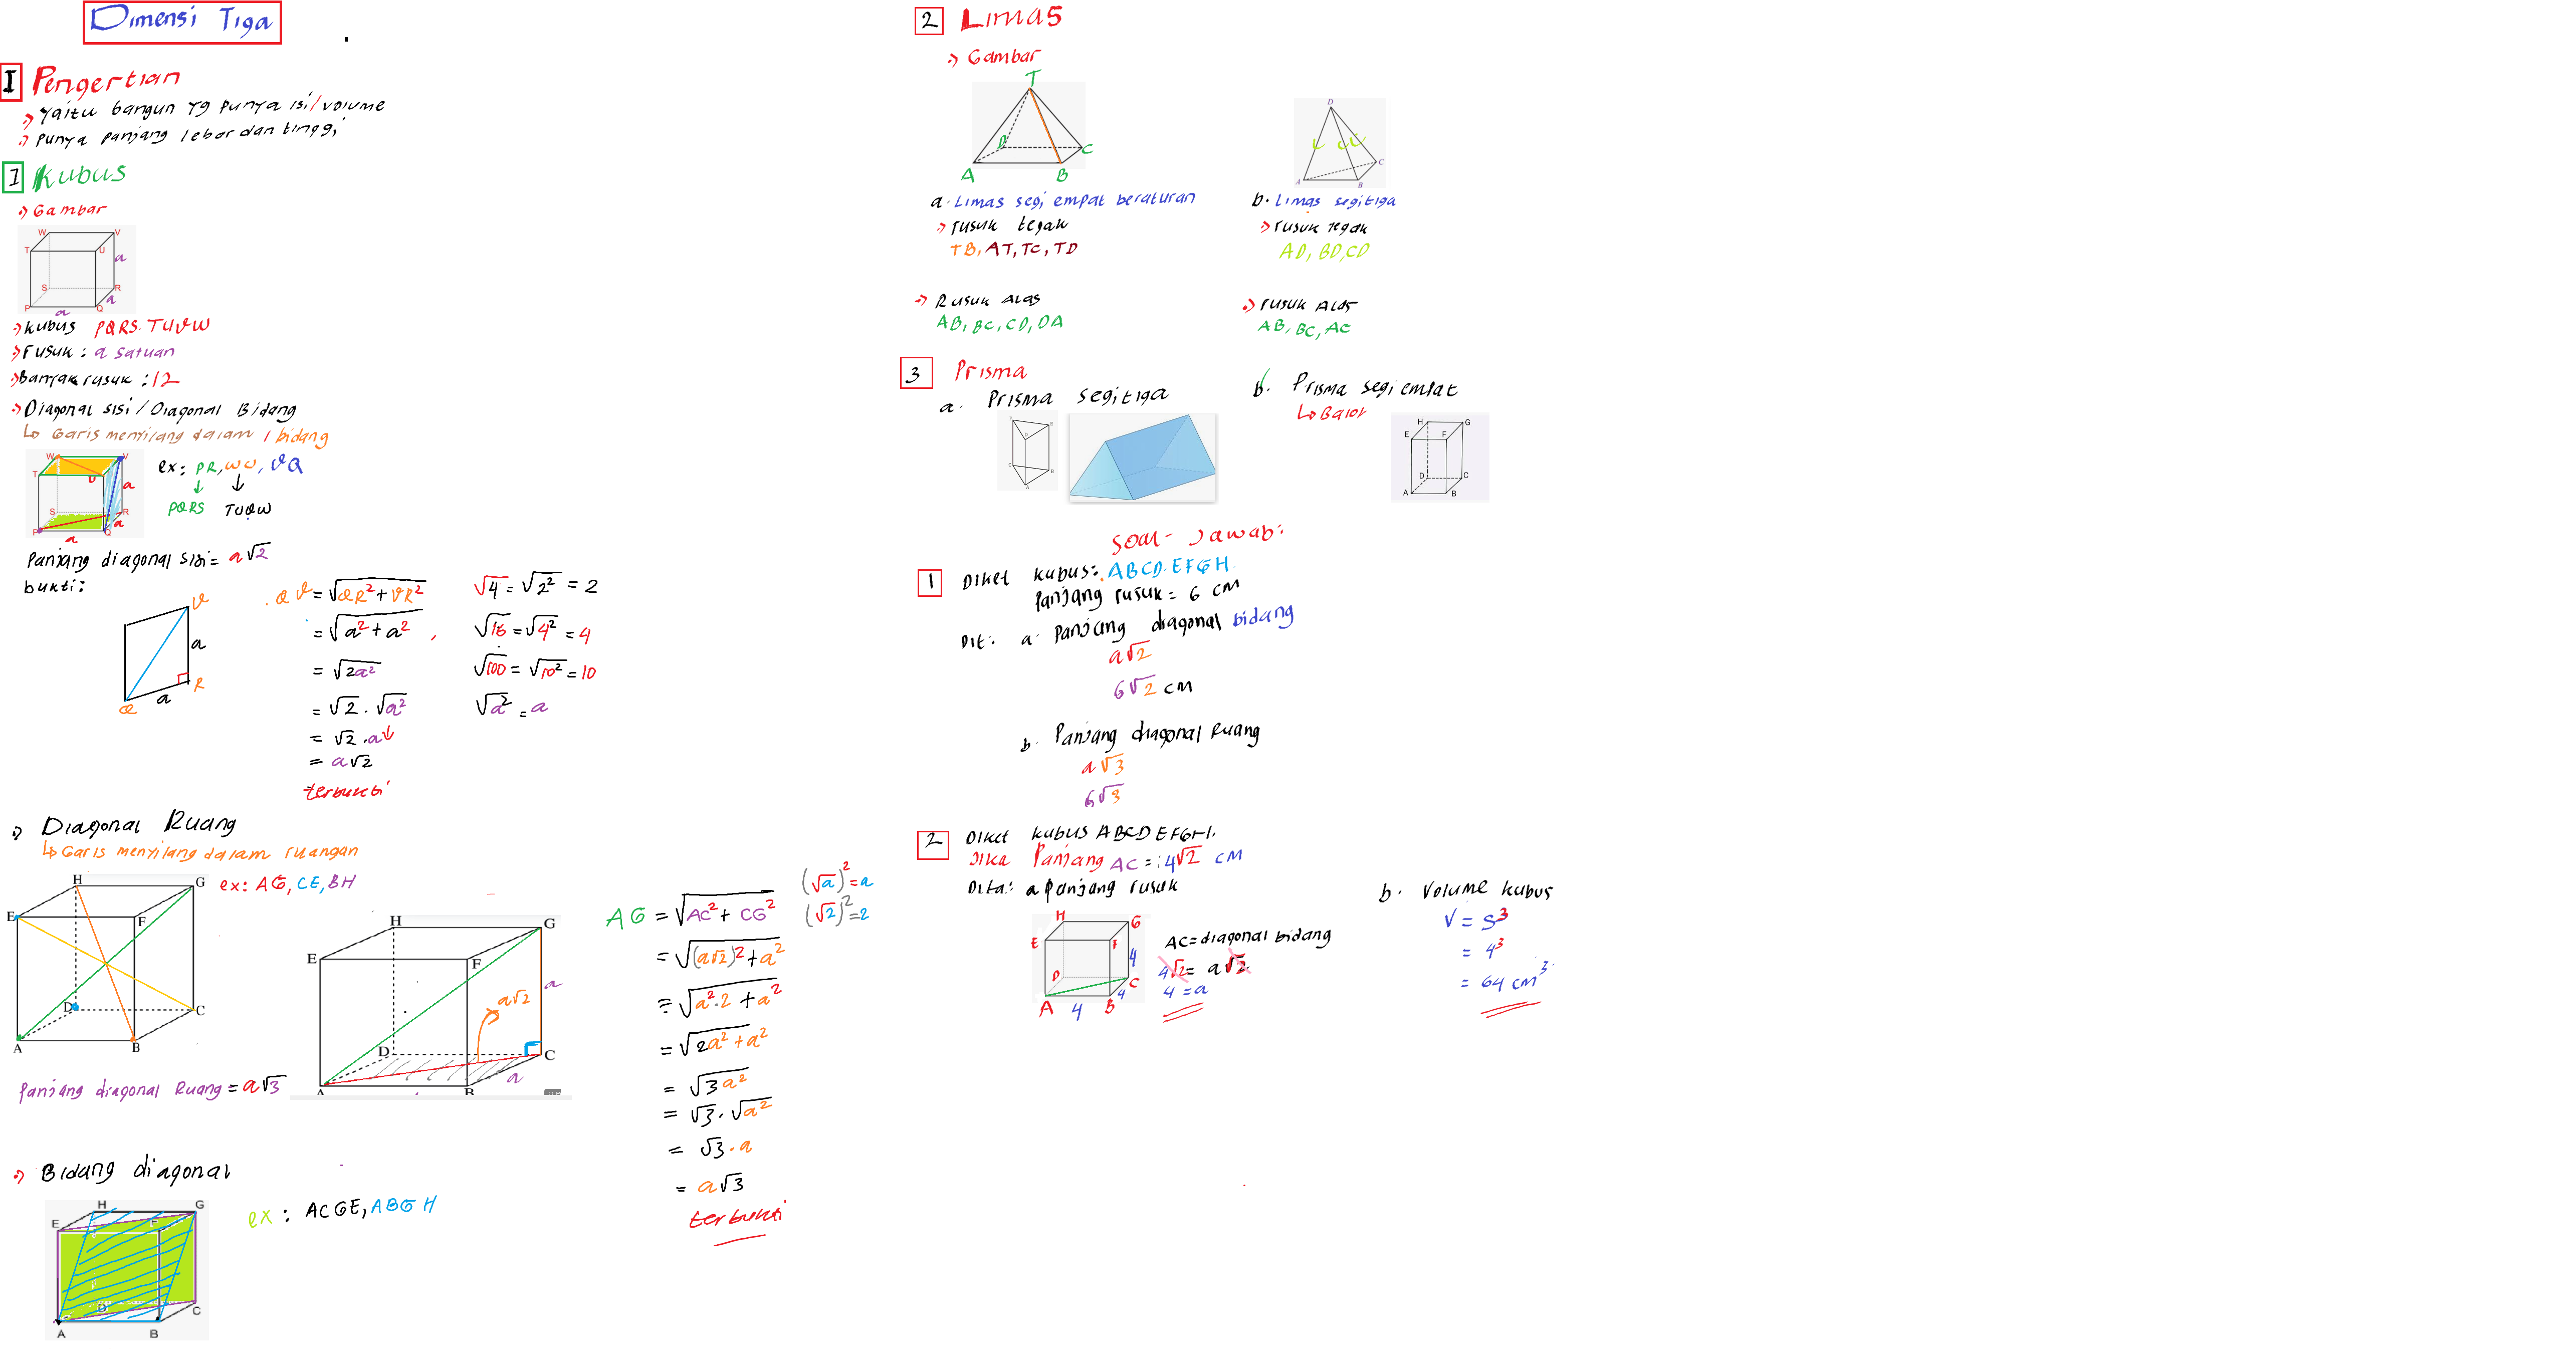 Dimensi Tiga
I Pengertian
Yaitu bangun yg punya isi/volume
Punya panjang lebar dan tinggi
1 Kubus
Gambar
W V
T U
a
S R
a
P Q
a
Kubus PQRS.TUVW
rusuk : a satuan
Banyak rusuk : 12
Diagonal sisi / Diagonal Bidang
Garis menyilang dalam 1 bidang
ex: PR, WU, VQ
PQRS TUVW
W V
T U
a
S R
a
P Q
a
Panjang diagonal sisi = a√2
bukti:
V
a
R
a
Q
QV = √QR² + VR²
= √a² + a²
= √2a²
= √2 . √a²
= √2 . a
= a√2
terbukti
√4 = √2² = 2
√16 = √4² = 4
√100 = √10² = 10
√a² = a
Diagonal Ruang
Garis menyilang dalam ruangan
ex: AG, CE, BH
H G
E F
D C
A B
Panjang diagonal Ruang = a√3
H G
E F
a
a√2
D C
a
A B
AG = √AC² + CG²
= √(a√2)² + a²
= √a².2 + a²
= √2a² + a²
= √3a²
= √3 . √a²
= √3 . a
= a√3
terbukti
(√a)² = a
(√2)² = 2
Bidang diagonal
ex : ACGE, ABGH
H G
E F
D C
A B
2 Limas
Gambar
T
D C
A B
a. Limas segi empat beraturan
rusuk tegak
TB, AT, TC, TD
Rusuk Alas
AB, BC, CD, DA
D
C
A B
b. Limas segitiga
rusuk tegak
AD, BD, CD
rusuk Alas
AB, BC, AC
3 Prisma
a. Prisma segitiga
F E
D
C B
A
b. Prisma segi empat
Balok
H G
E F
D C
A B
Soal - Jawab:
1 Diket kubus: ABCD.EFGH.
Panjang rusuk = 6 cm
Dit: a. Panjang diagonal bidang
a√2
6√2 cm
b. Panjang diagonal Ruang
a√3
6√3
2 Diket kubus ABCD EFGH.
Jika Panjang AC = 4√2 cm
Dita: a panjang rusuk
H G
E F
4
D C
4
A 4 B
AC = diagonal bidang
4√2 = a√2
4 = a
b. Volume kubus
V = S³
= 4³
= 64 cm³